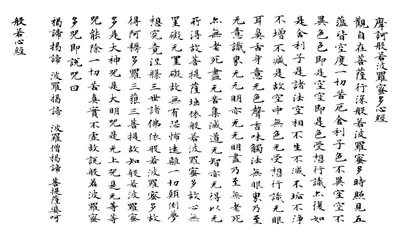 摩訶般若波羅蜜多心經
觀自在菩薩行深般若波羅蜜多時照見五
蘊皆空度一切苦厄舍利子色不異空空不
異色色即是空空即是色受想行識亦復如
是舍利子是諸法空相不生不滅不垢不淨
不增不減是故空中無色无受想行識无眼
耳鼻舌身意无色聲香味觸法無眼界乃至
无意識界无无明亦无无明盡乃至無老死
亦無老死盡无苦集滅道无智亦无得以无
所得故菩提薩埵依般若波羅蜜多故心無
罣礙无罣礙故無有恐怖遠離一切顛倒夢
想究竟涅槃三世諸佛依般若波羅蜜多故
得阿耨多羅三藐三菩提故知般若波羅蜜
多是大神咒是大明咒是无上咒是无等等
咒能除一切苦真實不虛故說般若波羅蜜
多咒即說咒曰
揭諦揭諦 波羅揭諦 波羅僧揭諦 菩提薩婆訶
般若心經